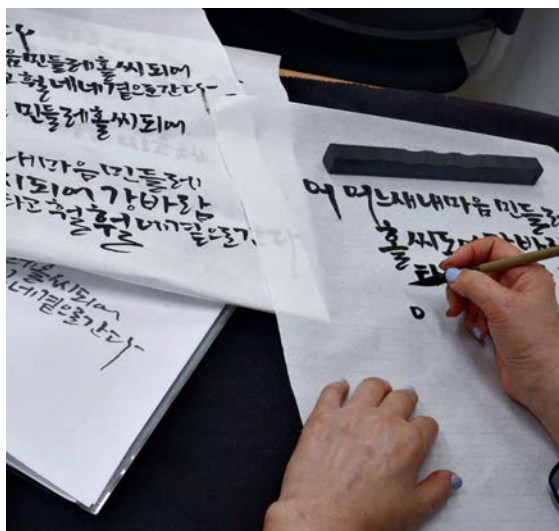 다
음 민들레 홀씨 되어
고 훨 네 곁으로 간다
민들레 홀씨 되어
내 마음 민들레
씨 되어 강바람
타고 훨훨 네 곁으로 간다
홀씨 되어
네 곁으로 간다
어 어느새 내 마음 민들레
홀씨 되어 강바람
타
ㅇ